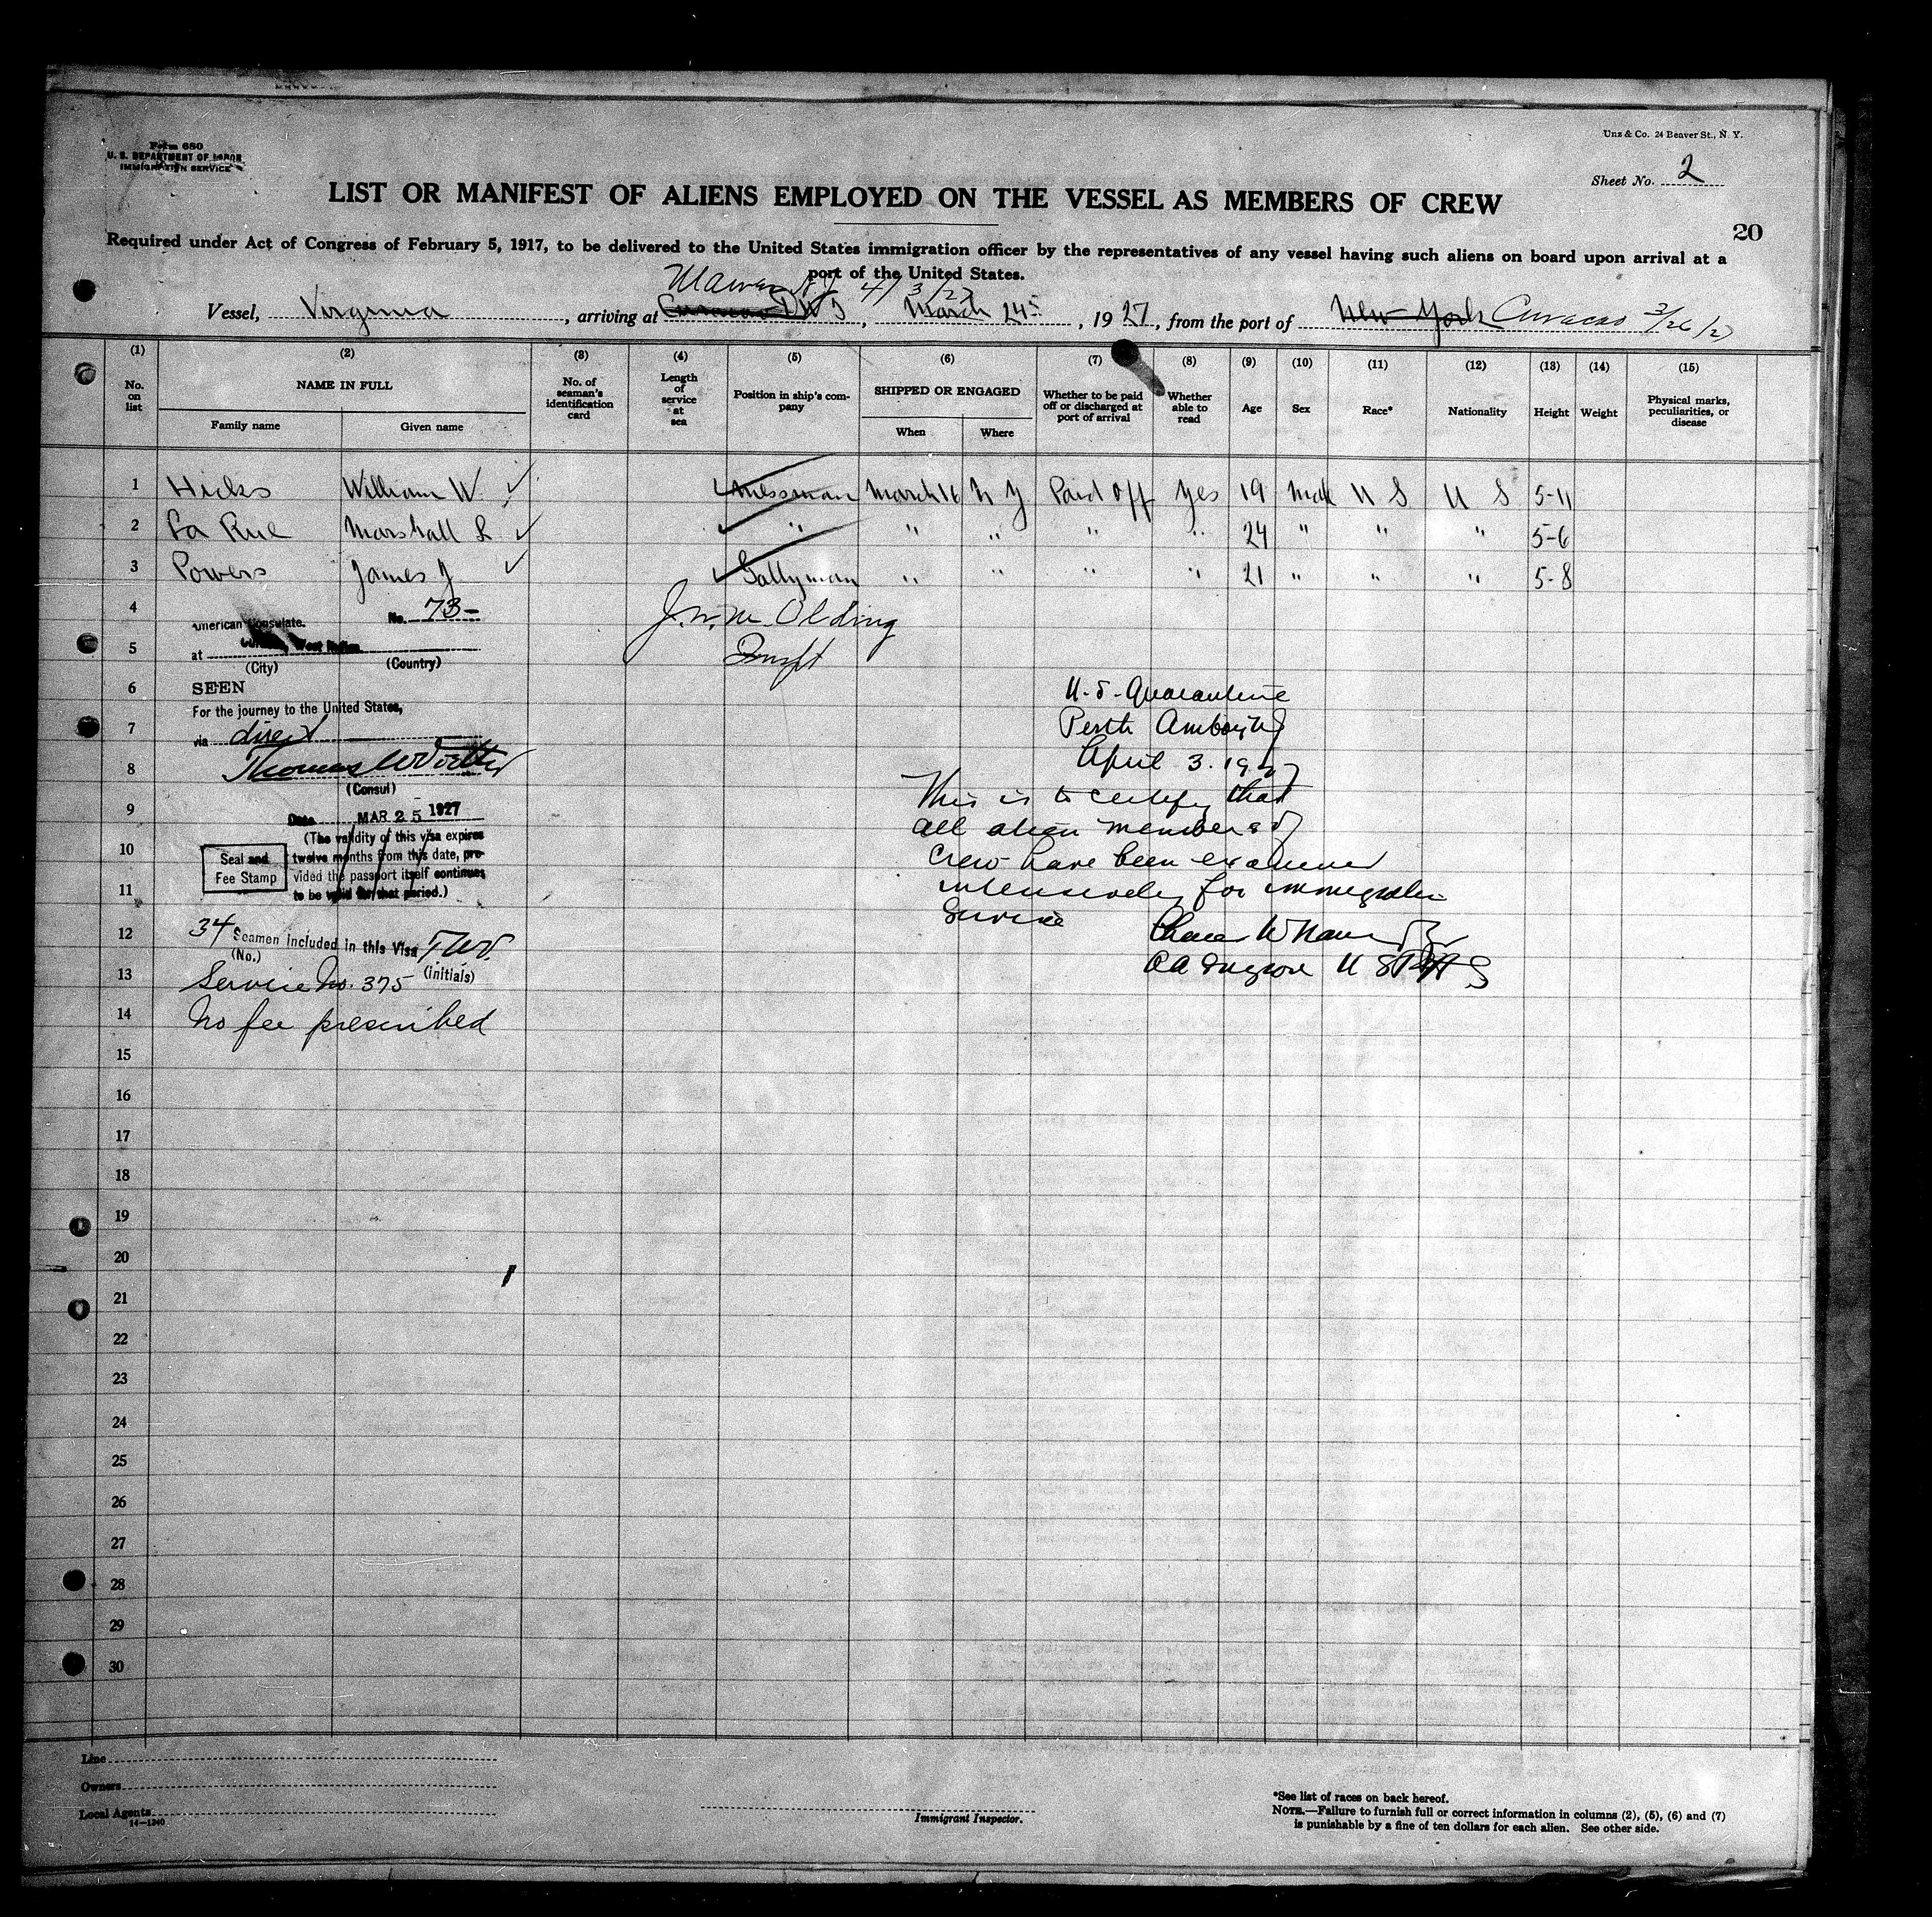 Form 680
U. S. DEPARTMENT OF LABOR
IMMIGRATION SERVICE
Unz & Co. 24 Beaver St., N. Y.
Sheet No. 2
LIST OR MANIFEST OF ALIENS EMPLOYED ON THE VESSEL AS MEMBERS OF CREW
20
Required under Act of Congress of February 5, 1917, to be delivered to the United States immigration officer by the representatives of any vessel having such aliens on board upon arrival at a
port of the United States.
N.J. 4/3/27
Vessel, Virginia, arriving at Curacao DWI, March 24, 1927, from the port of New York Curacao 3/26/27
(1) (2) (3) (4) (5) (6) (7) (8) (9) (10) (11) (12) (13) (14) (15)
No. on list
NAME IN FULL
Family name Given name
No. of seaman's identification card
Length of service at sea
Position in ship's company
SHIPPED OR ENGAGED
When Where
Whether to be paid off or discharged at port of arrival
Whether able to read
Age Sex Race* Nationality Height Weight
Physical marks, peculiarities, or disease
1 Hicks William W. ✓ Messman March 16 N Y Paid Off Yes 19 Male U S U S 5-11
2 La Rue Marshall L ✓ " " " " " 24 " " " 5-6
3 Powers James J ✓ Gallyman " " " " 21 " " " 5-8
4
American Consulate. No. 73-
J. W. M. Olding
5
at West Indies
(City) (Country)
6
SEEN
U.S. Quarantine
For the journey to the United States,
7
via direct
Perth Amboy NJ
April 3. 1927
8
(Consul)
This is to certify that
9
Date MAR 25 1927
all alien members of
(The validity of this visa expires
10
twelve months from this date, pro-
vided the passport itself continues
to be valid for that period.)
Seal and
Fee Stamp
crew have been examined
11
intensively for immigration
Service
12
34 Seamen included in this Visa TWV.
(No.) (Initials)
13
Service No. 375
14
No fee prescribed
15
16
17
18
19
20
21
22
23
24
25
26
27
28
29
30
Line
Owners
Local Agents
14—1240
Immigrant Inspector.
*See list of races on back hereof.
NOTE.—Failure to furnish full or correct information in columns (2), (5), (6) and (7)
is punishable by a fine of ten dollars for each alien. See other side.